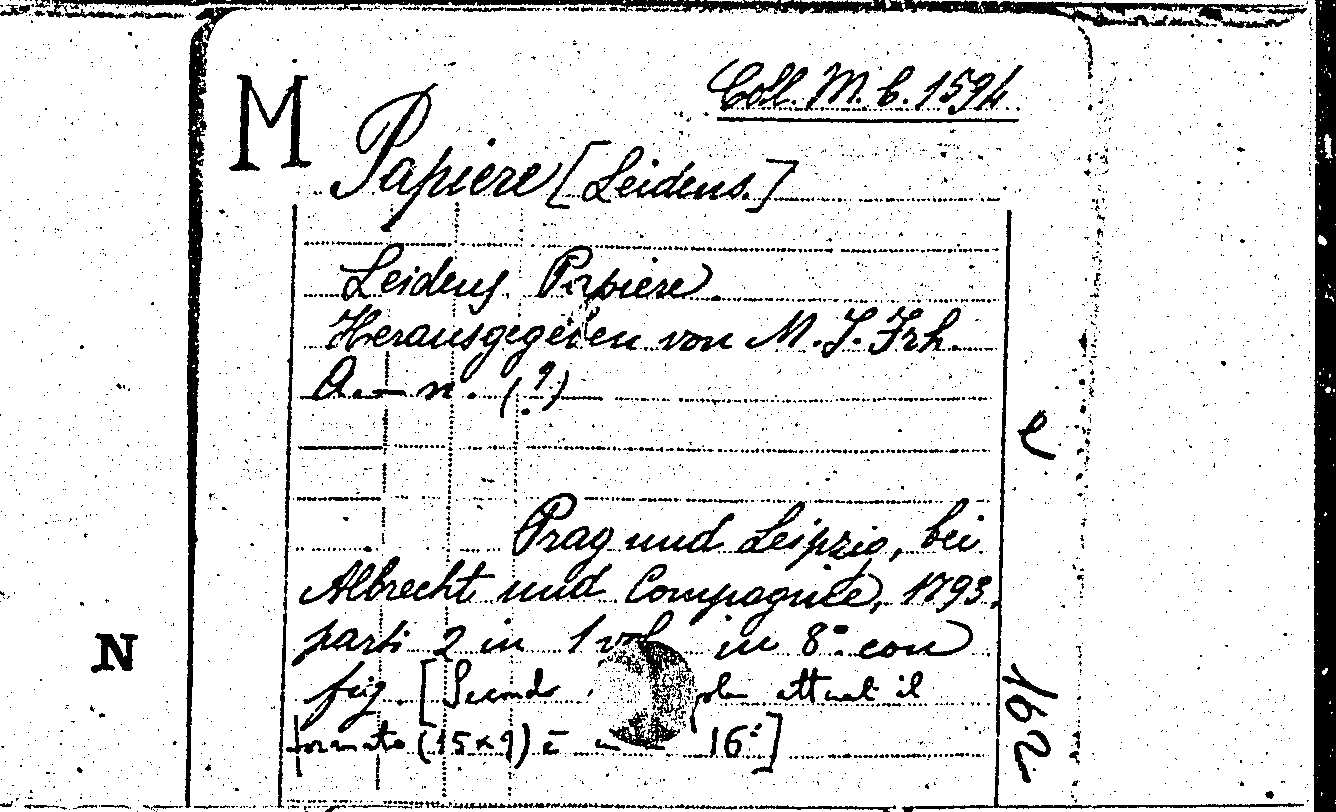 Coll. M. b. 1594
M
Papiere [Leidens.]
Leidens Papiere.
Herausgegeben von M. J. Frh.
A.—n. (?)
e
Prag und Leipzig, bei
Albrecht und Compagnie, 1793.
parti 2 in 1 vol in 8° con
N
fig. [Secondo attuali il
formato (15x9) è 16°]
162